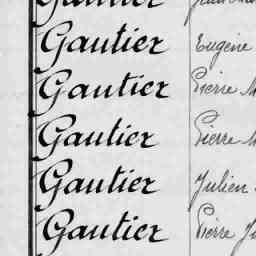 Gautier
Gautier Eugène
Gautier Pierre
Gautier Pierre
Gautier Julien
Gautier Pierre